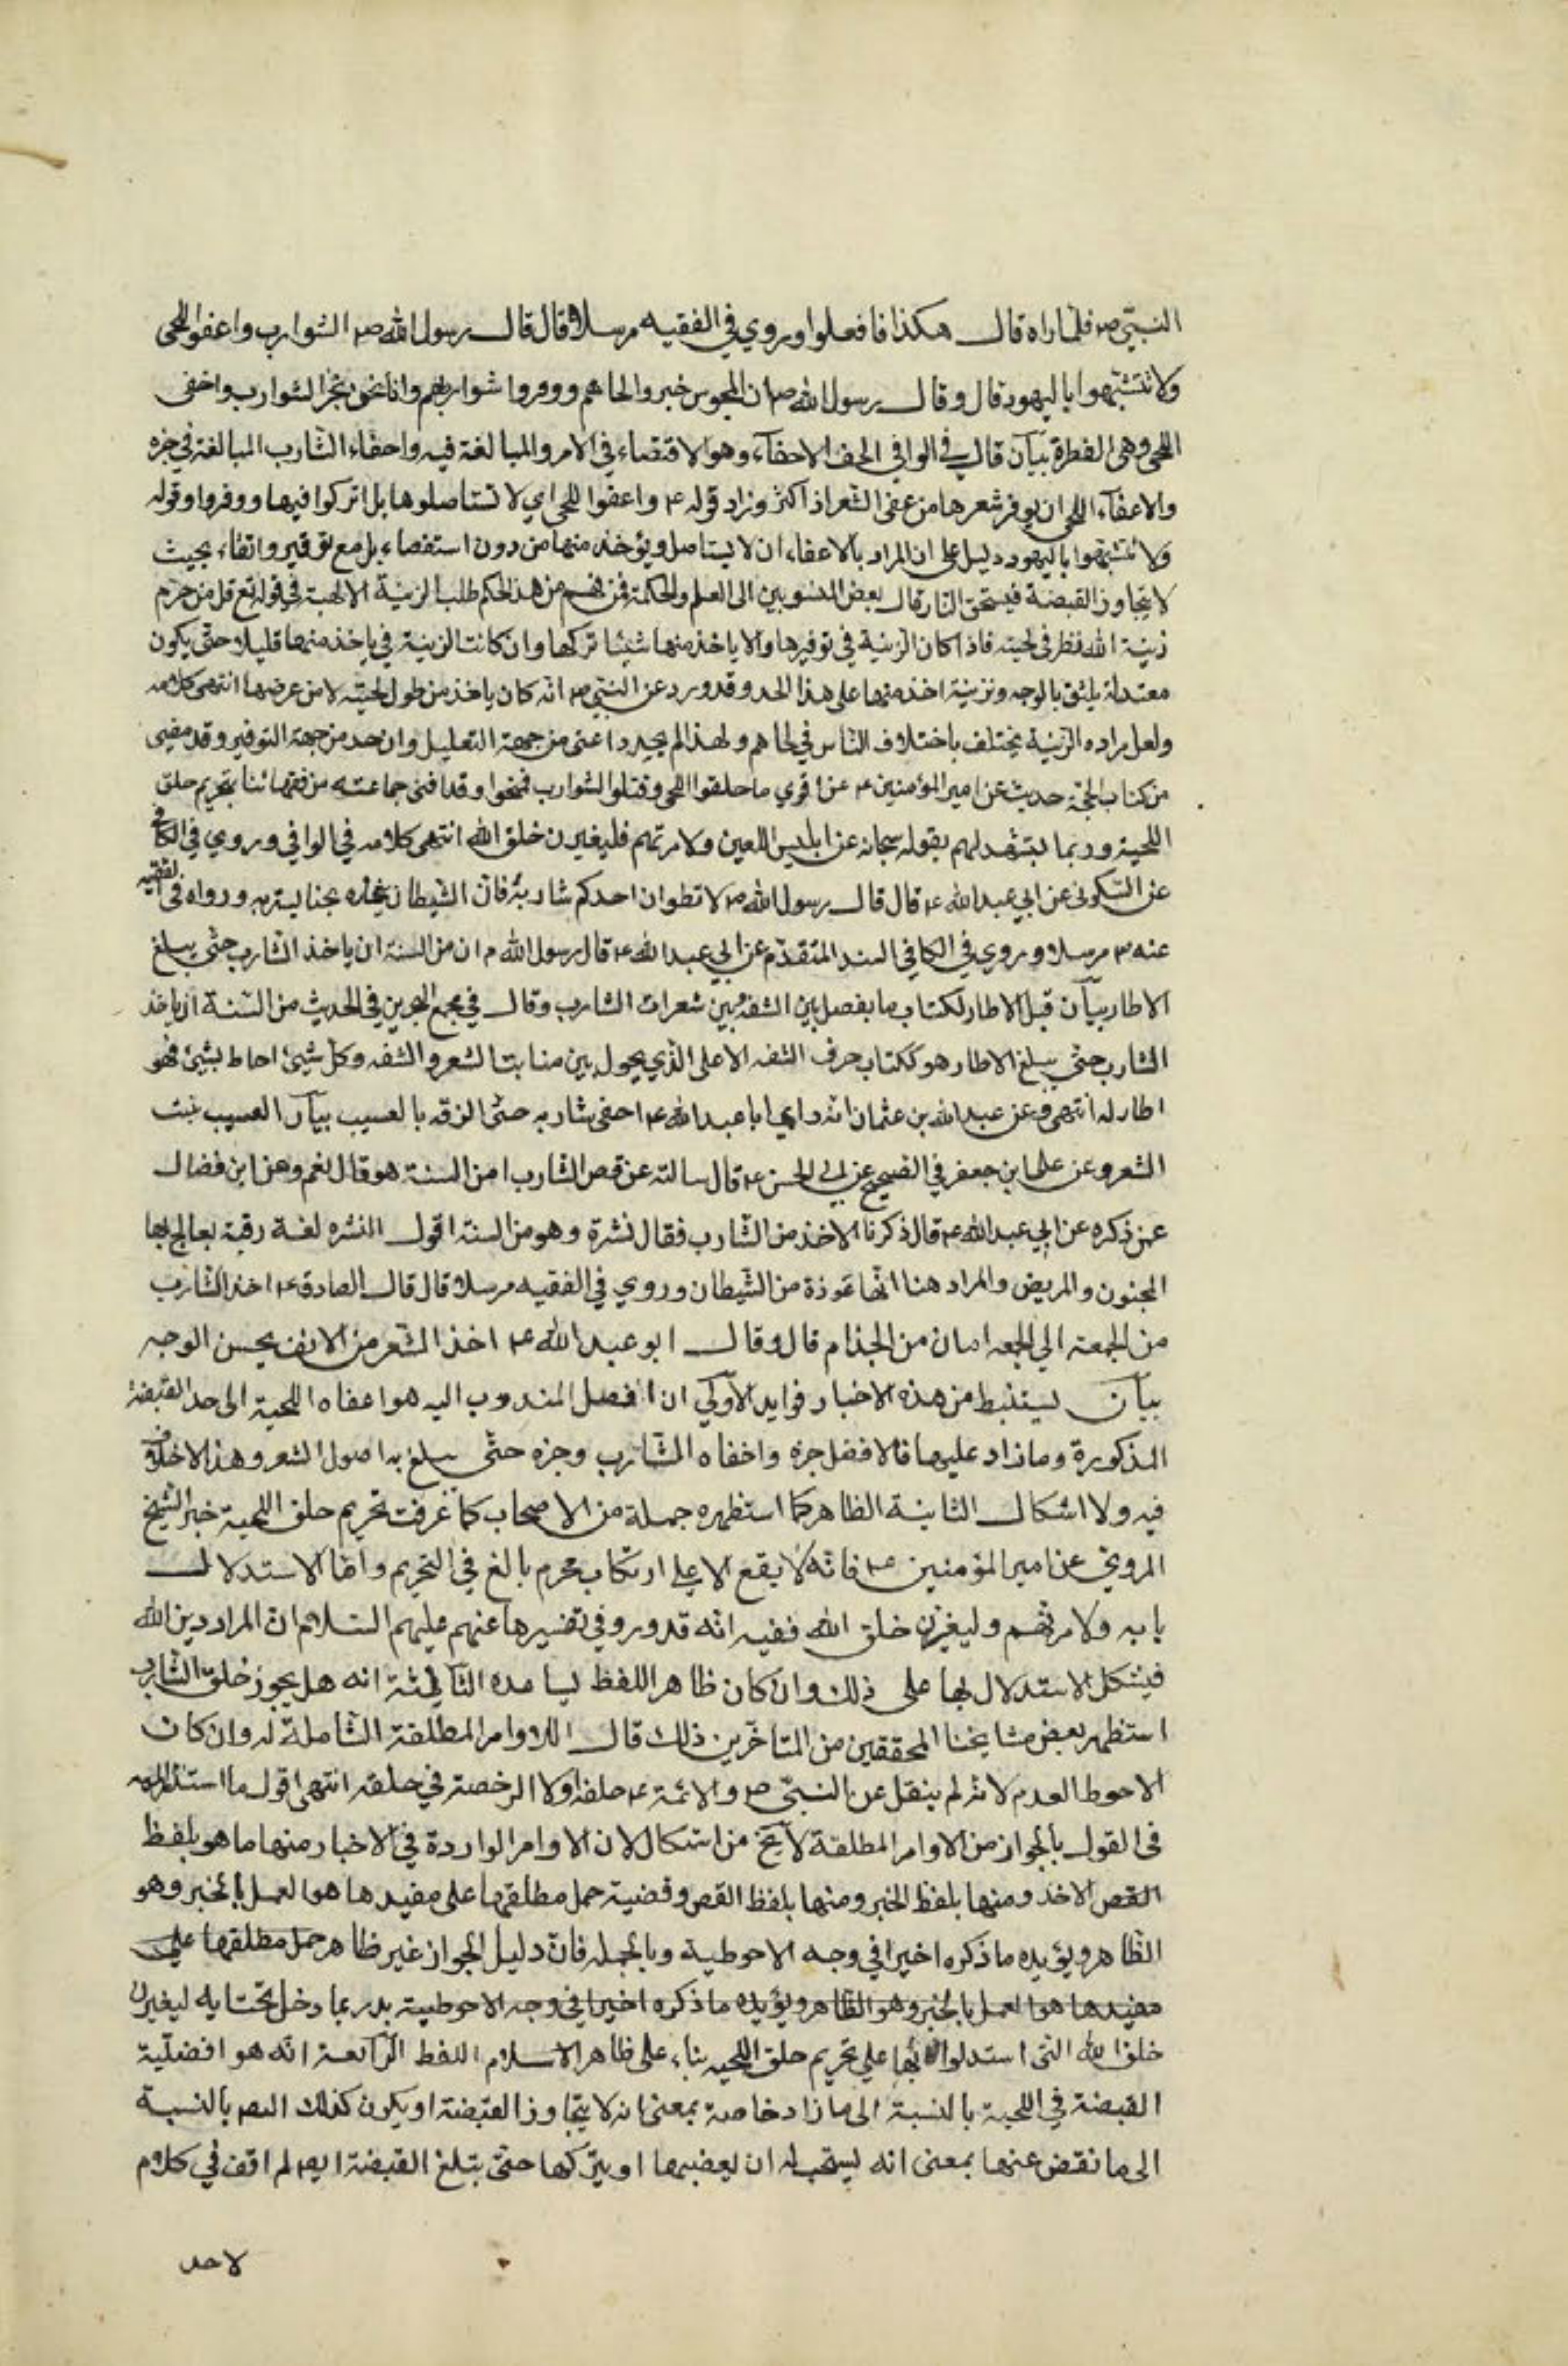 النبيّ ص فلما راه قال هكذا فافعلوا وروي في الفقيه مرسلا قال قال رسول الله ص الشوارب واعفوا اللحى
ولا تتشبهوا باليهود قال وقال رسول الله ص ان المجوس خبروا لحاهم ووفروا شواربهم وانا نحن نجز الشوارب واخفى
اللحى وهى الفطرة بيان قال في الوافي الحف الاحفاء وهو الاقتصاء في الامر والمبالغة فيه واحفاء الشارب المبالغة في جزه
والاعفاء اللحى ان يوفر شعرها من عفى الشعر اذا كثر وزاد قوله ع واعفوا اللحى اي لا تستاصلوها بل اتركوا فيها ووفروا وقوله
ولا تتشبهوا باليهود دليل على ان المراد بالاعفاء ان لا يستاصل ويؤخذ منها من دون استقصاء بل مع توقير وابقاء بحيث
لا يتجاوز القبضة فيستحق النار قال بعض المنسوبين الى العلم والحكمة فمن فهم من هذا الحكم طلب الزينة الالهية في قوله تع قل من حرم
زينة الله نظر في لحيته فاذا كان الزينة في توفيرها والا ياخذ منها شيئا تركها وان كانت الزينة في ياخذ منها قليلا حتى يكون
معتدلة يليق بالوجه وتزينه اخذ منها على هذا الحد وقد ورد عن النبي ص انه كان ياخذ من طول لحيته لا من عرضها انتهى كلامه
ولعل مراده الزينة يختلف باختلاف الناس في لحاهم ولهذا لم يحدد اعنى من جهة التقليل وان حد من جهة التوفير وقد مضى
من كتاب الحجة حديث عن امير المؤمنين ع عن اقوى ما حلقوا اللحى وفتلوا الشوارب فمسخوا وقد افتى جماعته من فقهائنا بتحريم حلق
اللحية وربما يستشهد لهم بقوله سبحانه عن ابليس اللعين ولامرنهم فليغيرن خلق الله انتهى كلامه في الوافي وروي في الكافي
عن السكونى عن ابي عبد الله ع قال قال رسول الله ص لا تطوان احدكم شاربه فان الشيطان يتخذه مجنا يستر به ورواه في الفقيه
عنه ص مرسلا وروي في الكافي السند المتقدم عن ابي عبد الله ع قال رسول الله ص ان من السنة ان ياخذ الشارب حتى يبلغ
الاطار بيان قيل الاطار لكتاب ما يفصل بين الشفة وبين شعرات الشارب وقال في مجمع البحرين في الحديث من السنة ان ياخذ
الشارب حتى يبلغ الاطار هو ككتاب حرف الشفه الاعلى الذي يحول بين منابت الشعر والشفه وكل شيئ احاط بشيئ فهو
اطار له انتهى وعن عبد الله بن عثمان انه راى ابا عبد الله ع احفى شاربه حتى الزقه بالعسيب بيان العسيب نبت
الشعر وعن على ابن جعفر في الصحيح عن ابي الحسن ع قال سالته عن قص الشارب امن السنة هو قال نعم وعن ابن فضال
عمن ذكره عن ابي عبد الله ع قال ذكرنا الاخذ من الشارب فقال نشرة وهو من السنة اقول النشره لغة رقية يعالج بها
المجنون والمريض والمراد هنا انها عوذة من الشيطان وروي في الفقيه مرسلا قال قال الصادق ع اخذ الشارب
من الجمعة الى الجمعه امان من الجذام قال وقال ابو عبد الله ع اخذ الشعر من الانف يحسن الوجه
بيان يستنبط من هذه الاخبار فوايد الاولى ان افضل المندوب اليه هو اعفاه اللحية الى حد القبضة
المذكورة وما زاد عليها فالافضل جزه واخفاه الشارب وجزه حتى يبلغ به اصول الشعر وهذا لاخلاف
فيه ولا اشكال الثانية الظاهر كما استظهره جملة من الاصحاب كما عرفت تحريم حلق اللحية خبر الشيخ
المروي عن امير المؤمنين ع فانه لا يقع الا على ارتكاب محرم بالغ في التحريم واما الاستدلال
بايه ولامرنهم وليغيرن خلق الله ففيه انه قد ورد في تفسيرها عنهم عليهم السلام ان المراد دين الله
فيشكل الاستدلال بها على ذلك وان كان ظاهر اللفظ يساعده الثالثة انه هل يجوز خلق الشارب
استظهر بعض مشايخنا المحققين من المتاخرين ذلك قال اللاوامر المطلقة الشاملة له وان كان
الاحوط العدم لانه لم ينقل عن النبي ص والائمة ع حلقه ولا الرخصة في حلقه انتهى اقول ما استند اليه
في القول بالجواز من الاوامر المطلقة لا يخ من اشكال لان الاوامر الواردة في الاخبار منها ما هو بلفظ
القص الاخذ ومنها بلفظ الخبر ومنها بلفظ القص وقضية حمل مطلقها على مقيدها هو العمل بالخبر وهو
الظاهر ويؤيده ما ذكره اخيرا في وجه الاحوطية وبالجمله فان دليل الجواز غير ظاهر حمل مطلقها على
مقيدها هو العمل بالخبر وهو الظاهر ويؤيده ما ذكره اخيرا في وجه الاحوطية بل ربما دخل تحت ايه ليغيرن
خلق الله التى استدلوا بها على تحريم حلق اللحيه بناء على ظاهر الاسلام اللفظ الرابعة انه هو افضلية
القبضة في اللحية بالنسبة الى ما زاد خاصة بمعنى انه لا يتجاوز القبضة او يكون كذلك ايض بالنسبة
الى ما نقض عنها بمعنى انه يستحب له ان يعضبها او يتركها حتى يتلغ القبضة ايض لم اقف في كلام
لاحد